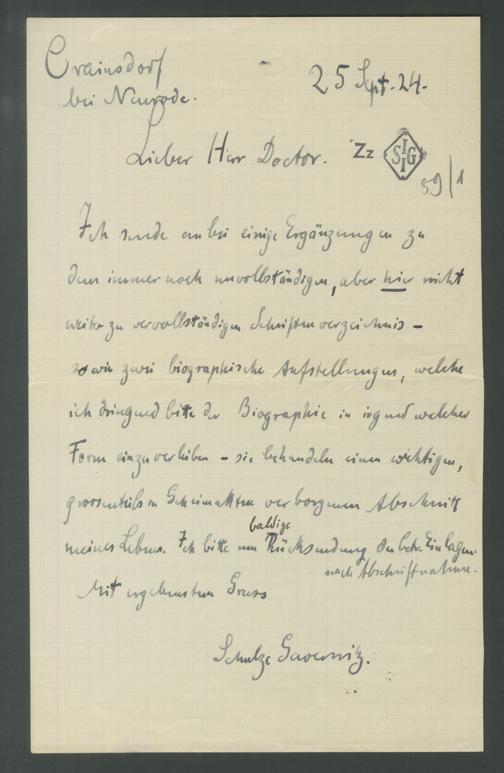 Crainsdorf
bei Neurode.
25 Sept. 24.
Lieber Herr Doctor.
Zz SIIG
59/1
Ich sende anbei einige Ergänzungen zu
dem immer noch unvollständigen, aber hier nicht
weiter zu vervollständigen Schriftenverzeichnis –
sowie zwei biographische Aufstellungen, welche
ich dringend bitte der Biographie in irgend welcher
Form einzuverleiben – sie behandeln einen wichtigen,
grossenteils in Geheimakten verborgenen Abschnitt
meines Lebens. Ich bitte um baldige Rücksendung der betr. Einlagen
nach Abschriftnahme.
Mit ergebenstem Gruss
Schulze Gaevernitz.